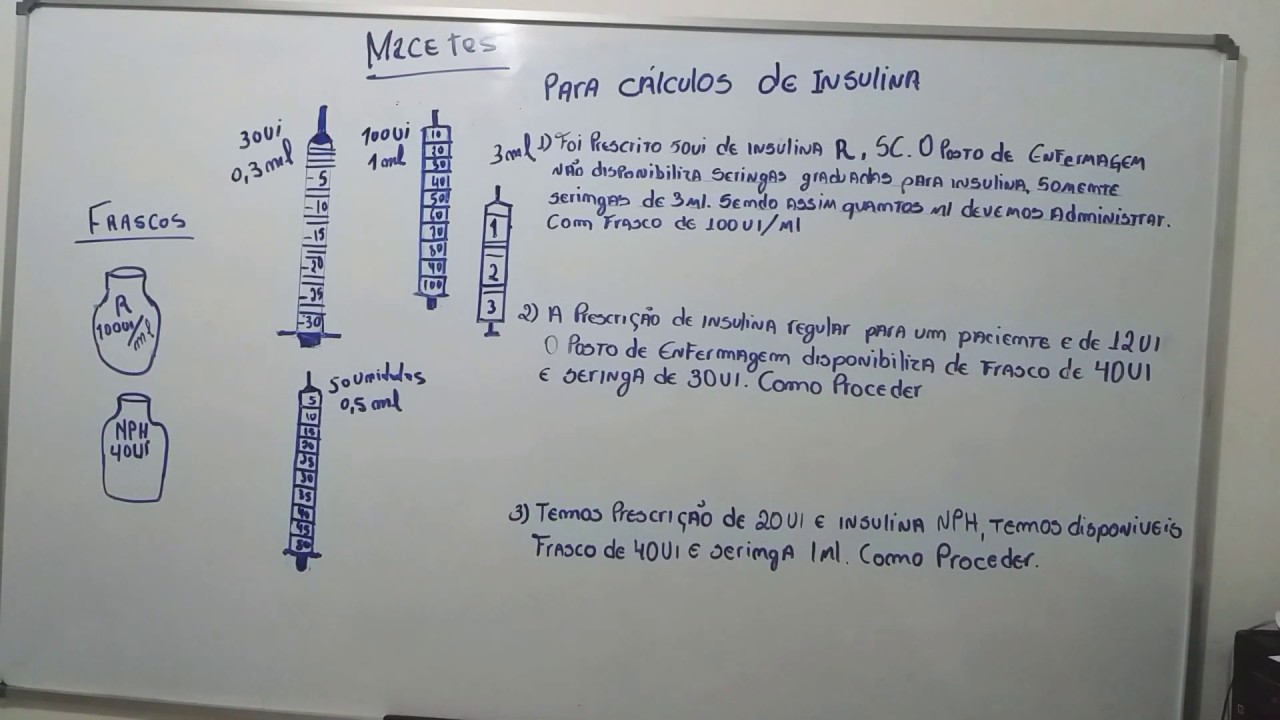 MaCETES
PARA CÁLCULOS de INSULINA
FRASCOS
R
100UI/ml
NPH
40UI
30Ui
0,3ml
-5
-10
-15
-20
-25
-30
100Ui
1ml
10
20
30
40
50
60
70
80
90
100
3ml
1
2
3
50unidules
0,5ml
5
10
15
20
25
30
35
40
45
50
1) Foi Prescrito 50ui de INSULINA R, SC. O Posto de ENFERMAGEM
NÃO disponibiliza seringas graduadas para insulina, somente
seringas de 3ml. Sendo assim quantos ml devemos Administrar.
Com Frasco de 100UI/ml
2) A Prescrição de INSULINA regular para um paciente e de 12UI
O Posto de Enfermagem disponibiliza de Frasco de 40UI
E SERINGA de 30UI. Como Proceder
3) Temos Prescrição de 20UI E INSULINA NPH, Temos disponiveis
Frasco de 40UI E Seringa 1ml. Como Proceder.